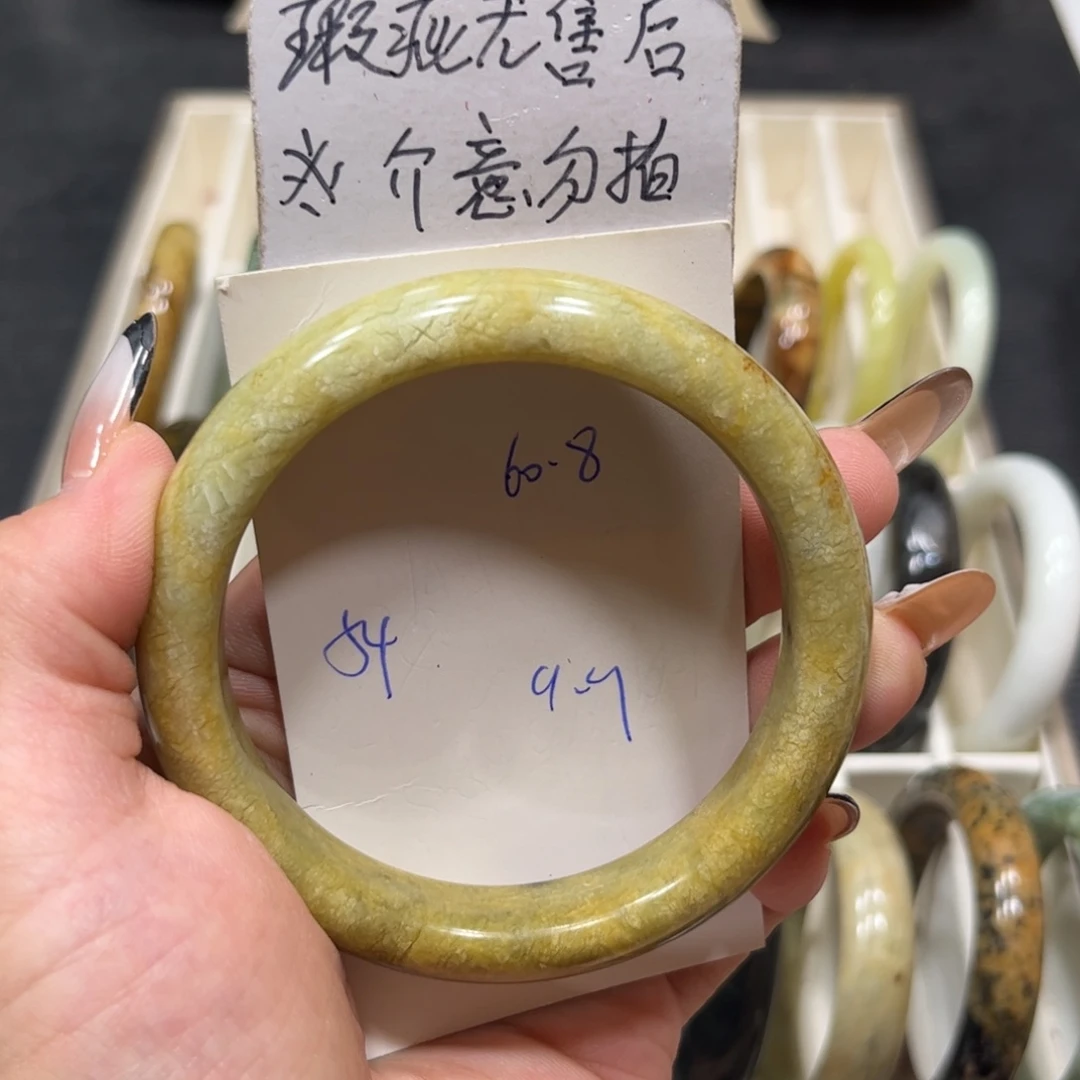 瑕疵无售后
※ 介意勿拍
60.8
54
9.9